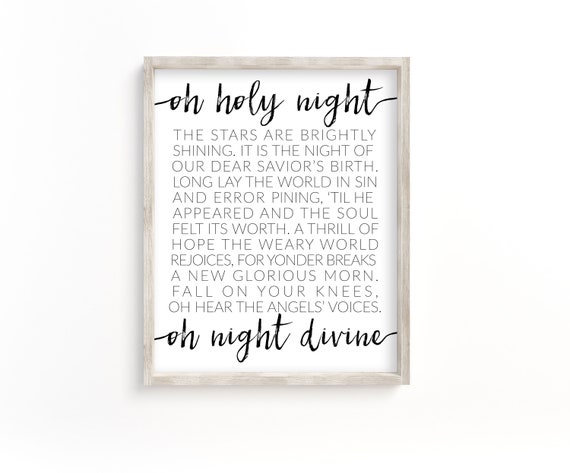 oh holy night
THE STARS ARE BRIGHTLY
SHINING. IT IS THE NIGHT OF
OUR DEAR SAVIOR'S BIRTH.
LONG LAY THE WORLD IN SIN
AND ERROR PINING, 'TIL HE
APPEARED AND THE SOUL
FELT ITS WORTH. A THRILL OF
HOPE THE WEARY WORLD
REJOICES, FOR YONDER BREAKS
A NEW GLORIOUS MORN.
FALL ON YOUR KNEES,
OH HEAR THE ANGELS' VOICES.
oh night divine